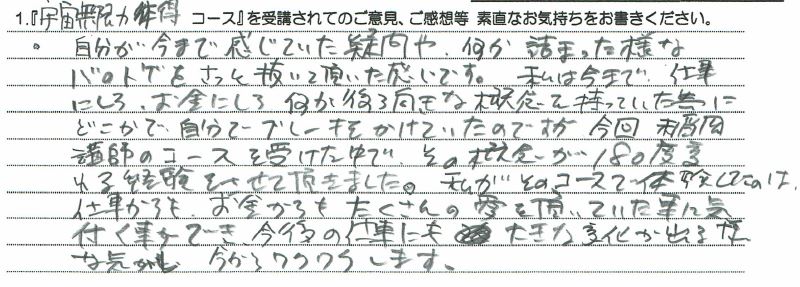 1.『宇宙無限力獲得 コース』を受講されてのご意見、ご感想等 素直なお気持ちをお書きください。
。自分が今まで感じていた疑問や、何か詰まった様な
バラのトゲをさっと抜いて頂いた感じです。私は今まで、仕事
にしろ、お金にしろ 何か後ろ向きな概念を持っていた為に
どこかで、自分でブレーキをかけていたのですが 今回
講師のコースを受けた中で、その概念が180度変
わる経験をさせて頂きました。私がそのコースで体験したのは、
仕事からも、お金からもたくさんの愛を頂いていた事に気
付く事ができ、今後の仕事にも 大きな変化が出る様
な気がし 今からワクワクします。